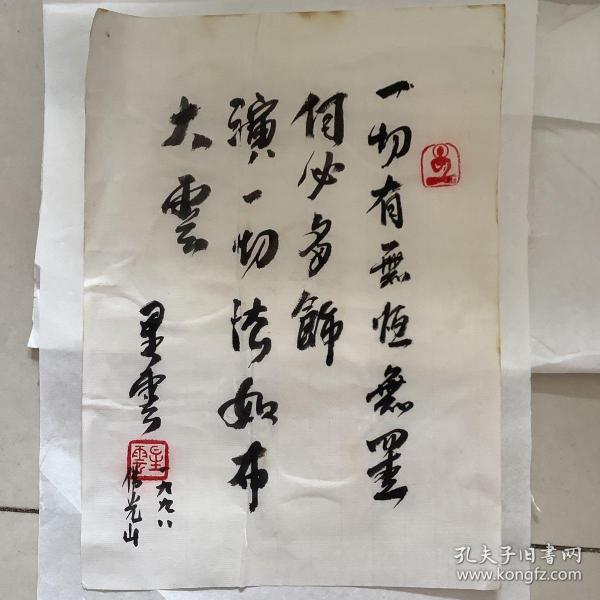 一切有無恒無墨
何必多飾
演一切法如布
大雲
星雲
一九九八
佛光山
星雲
孔夫子旧书网
www.kongfz.com